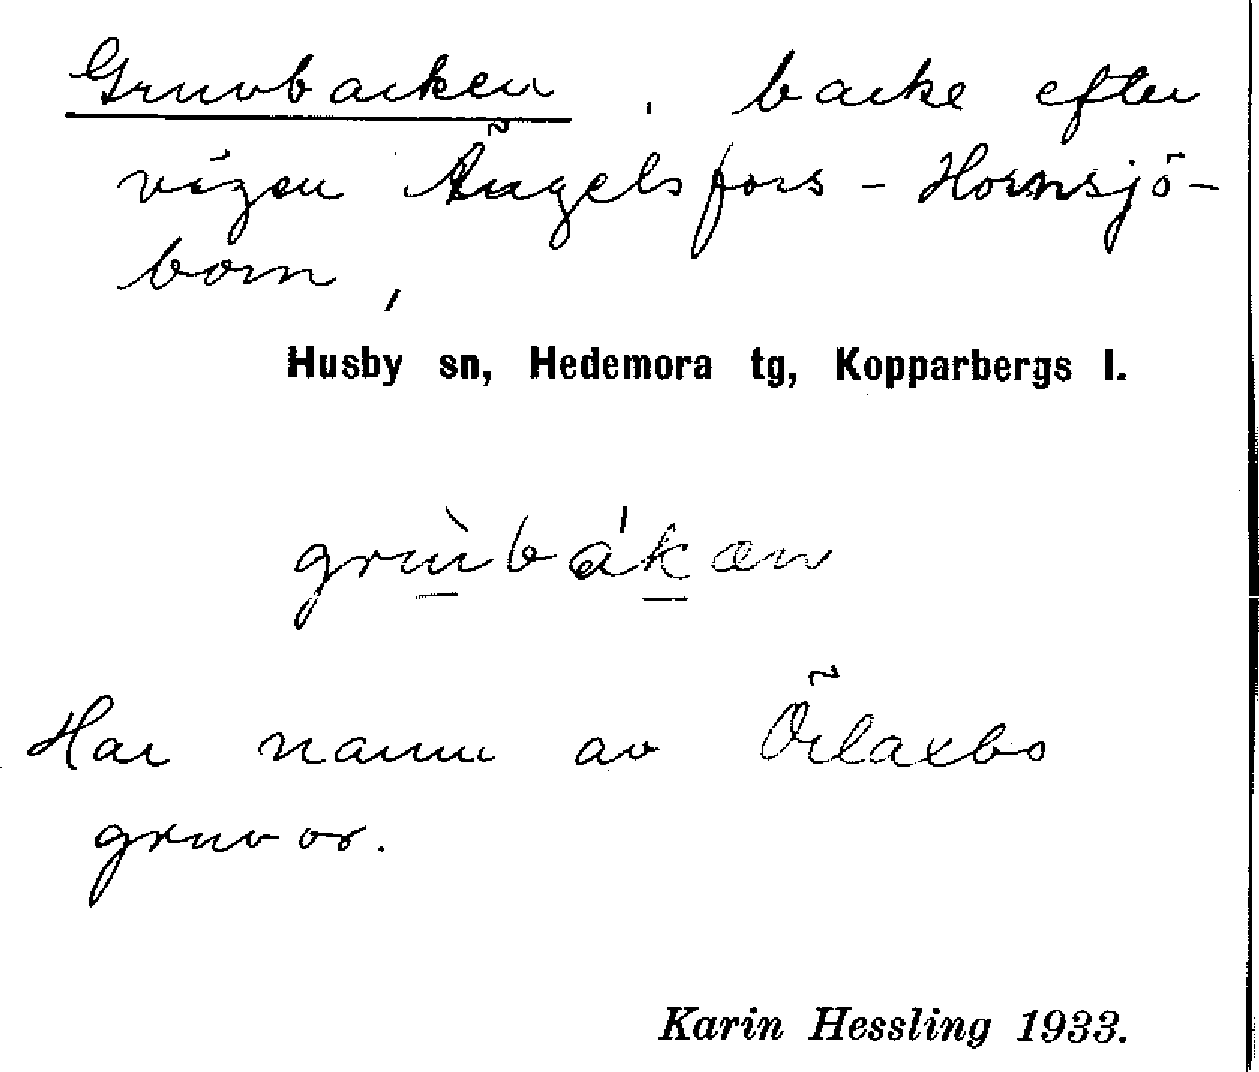 Gruvbacken, backe efter
vägen Ängelsfors – Hornsjö-
born,
Husby sn, Hedemora tg, Kopparbergs l.
grùbákæn
Har namn av Örlaxbo
gruvor.
Karin Hessling 1933.